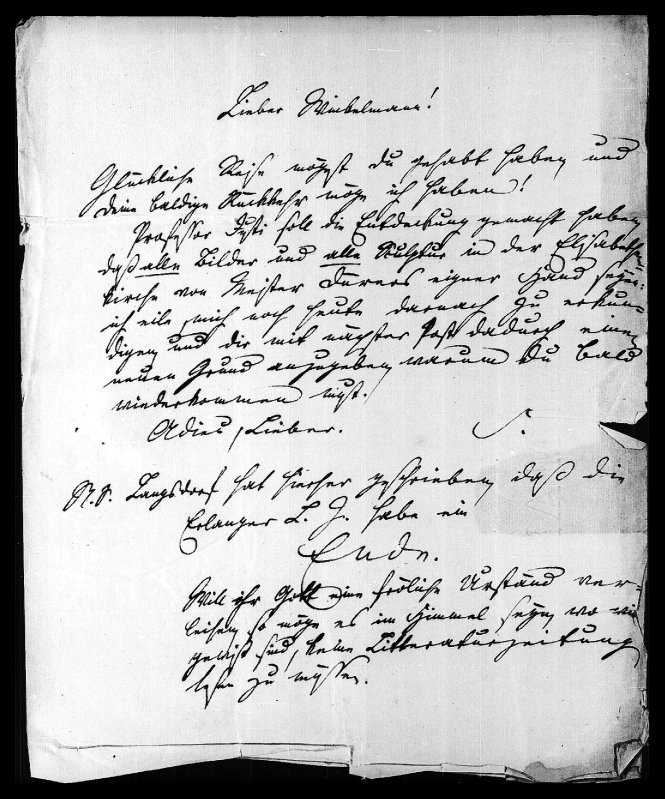 Lieber Winkelmann!
Glückliche Reise mögest du gehabt haben und
deine baldige Rückkehr möge ich haben!
Professor Justi soll die Entdeckung gemacht haben,
daß alle Bilder und alle Skulptur in der Elisabeth-
kirche von Meister Dürers eigner Hand seyen:
ich eile, mich noch heute darnach zu erkun-
digen und dir mit nächster Post dadurch einen
neuen Grund anzugeben, warum du bald
wiederkommen mußt.
Adieu, Lieber. S.
N. S. Langsdorf hat hierher geschrieben, daß die
Erlanger L. Z. habe ein
Ende.
Will ihr Gott eine fröliche Urständ ver-
leihen, so möge es im Himmel seyn, wo wir
gewiß sind, keine Litteraturzeitung
lesen zu müssen.